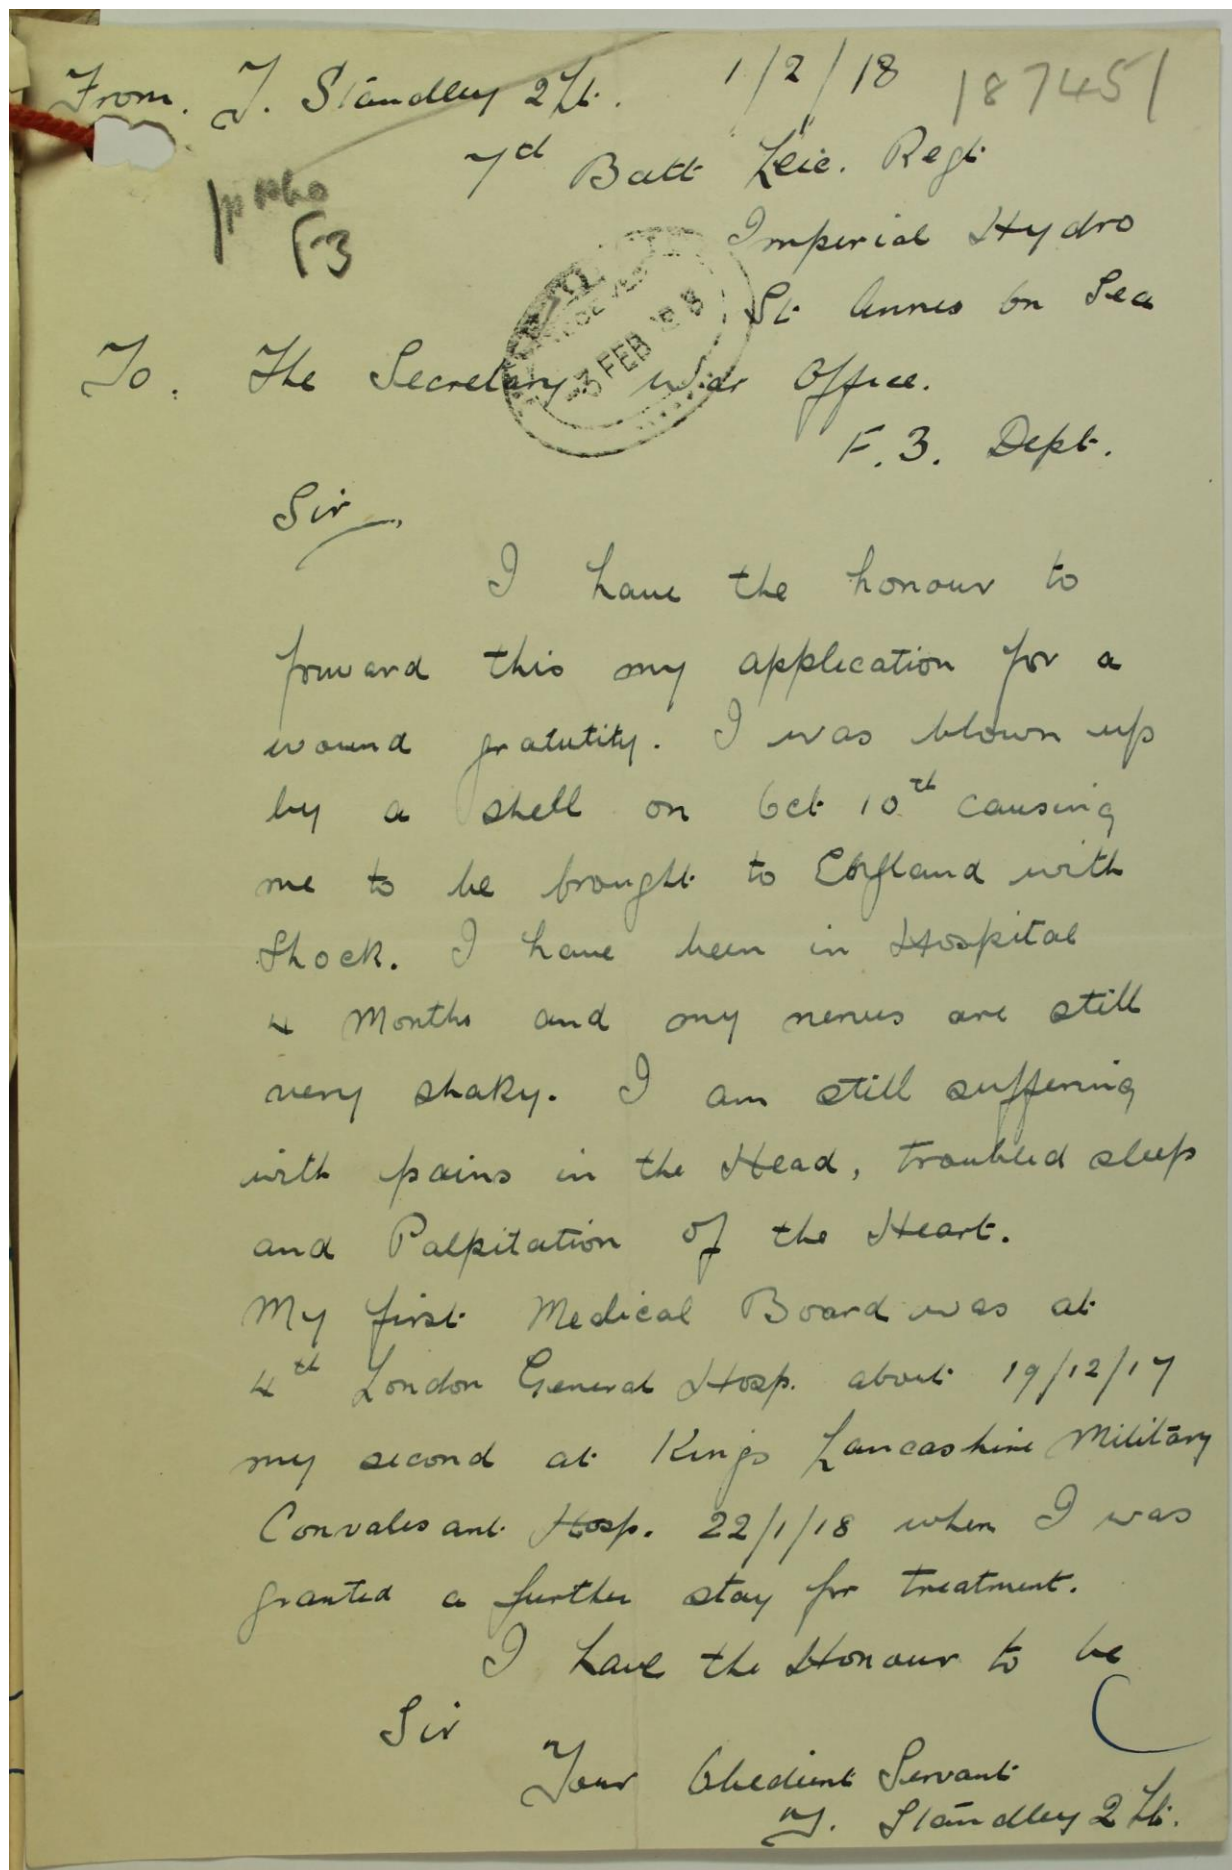 From. T. Standley 2 Lt. 1/2/18 187451
7d Batt Leic. Regt
F3
Imperial Hydro
St Annes On Sea
3 FEB
To. The Secretary War Office.
F.3. Dept.
Sir
I have the honour to
forward this my application for a
wound gratutity. I was blown up
by a shell on Oct 10th causing
me to be brought to England with
Shock. I have been in Hospital
4 Months and my nerves are still
very shaky. I am still suffering
with pains in the Head, troubled sleep
and Palpitation of the Heart.
My first Medical Board was at
4th London General Hosp. about 19/12/17
my second at Kings Lancashire Military
Convalesant Hosp. 22/1/18 when I was
granted a further stay for treatment.
I have the Honour to be
Sir
Your Obedient Servant
T. Standley 2 Lt.